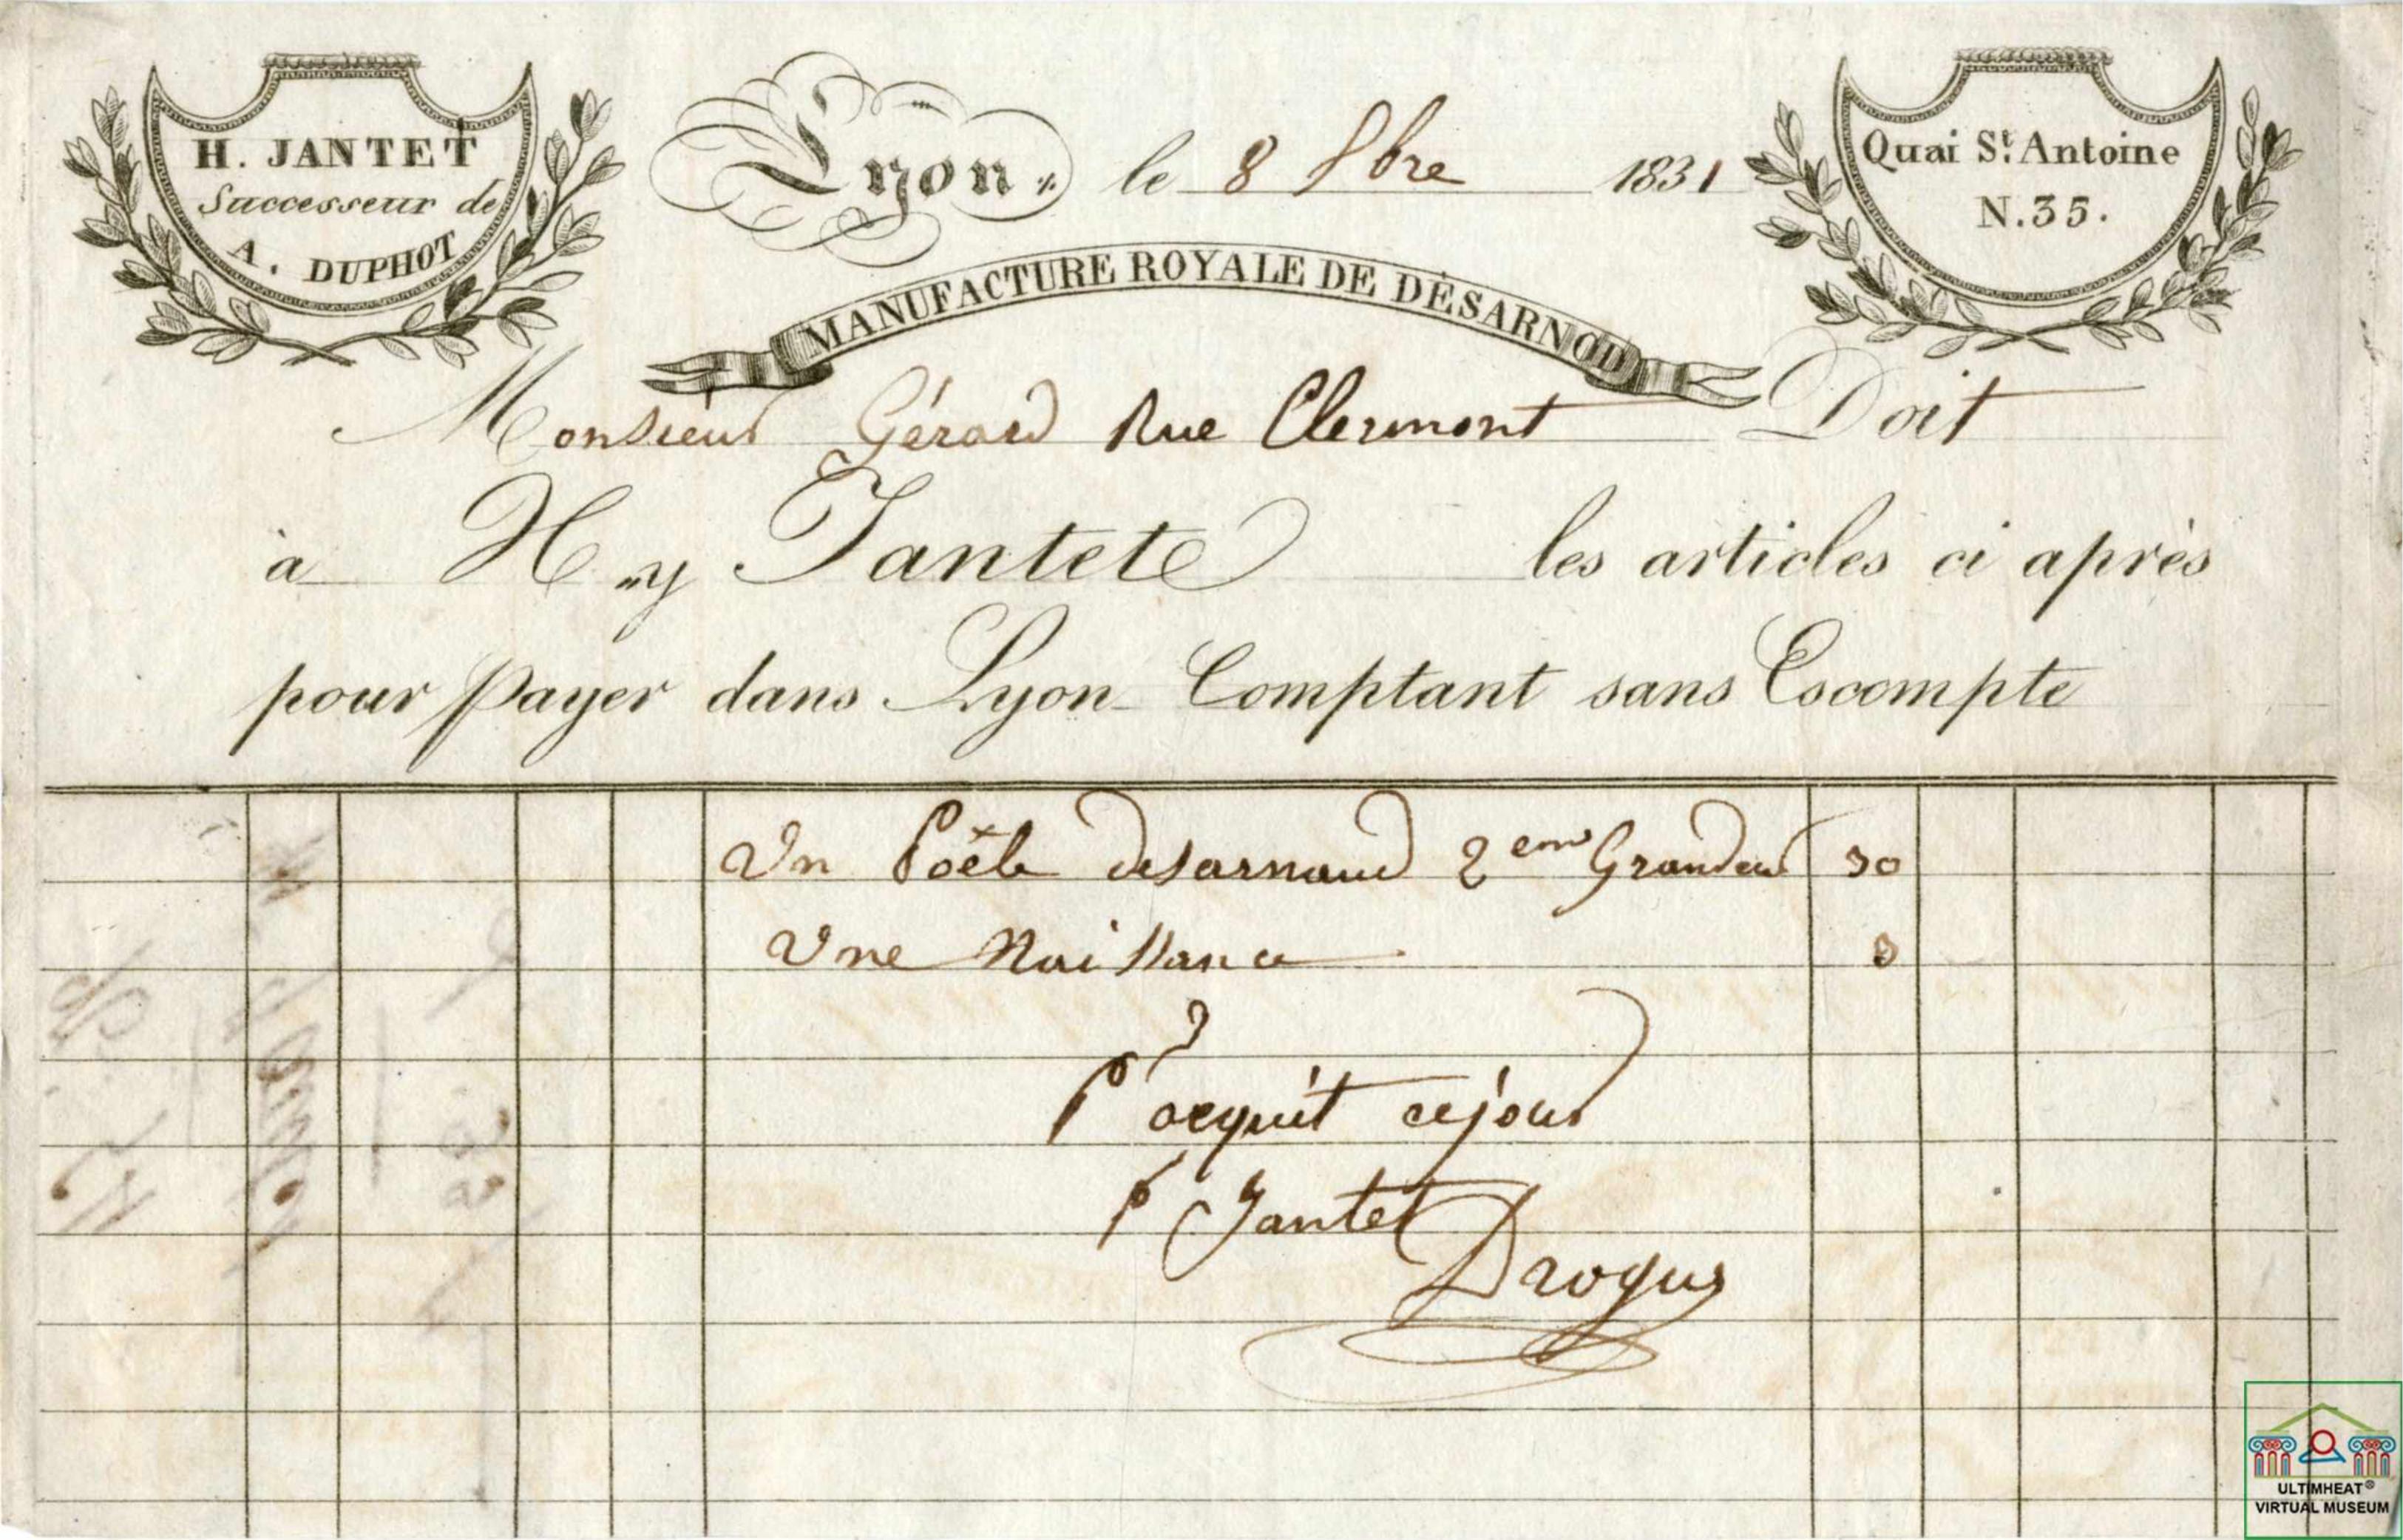 H. JANTET
Successeur de
A. DUPHOT
Lyon, le 8 8bre 1831
Quai St. Antoine
N. 35.
MANUFACTURE ROYALE DE DÉSARNOD
Monsieur Gérard Rue Clermont Doit
à H.y Jantet les articles ci après
pour payer dans Lyon Comptant sans Escompte
Un Poêle desarnaud 2eme Grandeur 30
Une Naissance 3
pr acquit ce jour
pr Jantet
ULTIMHEAT®
VIRTUAL MUSEUM